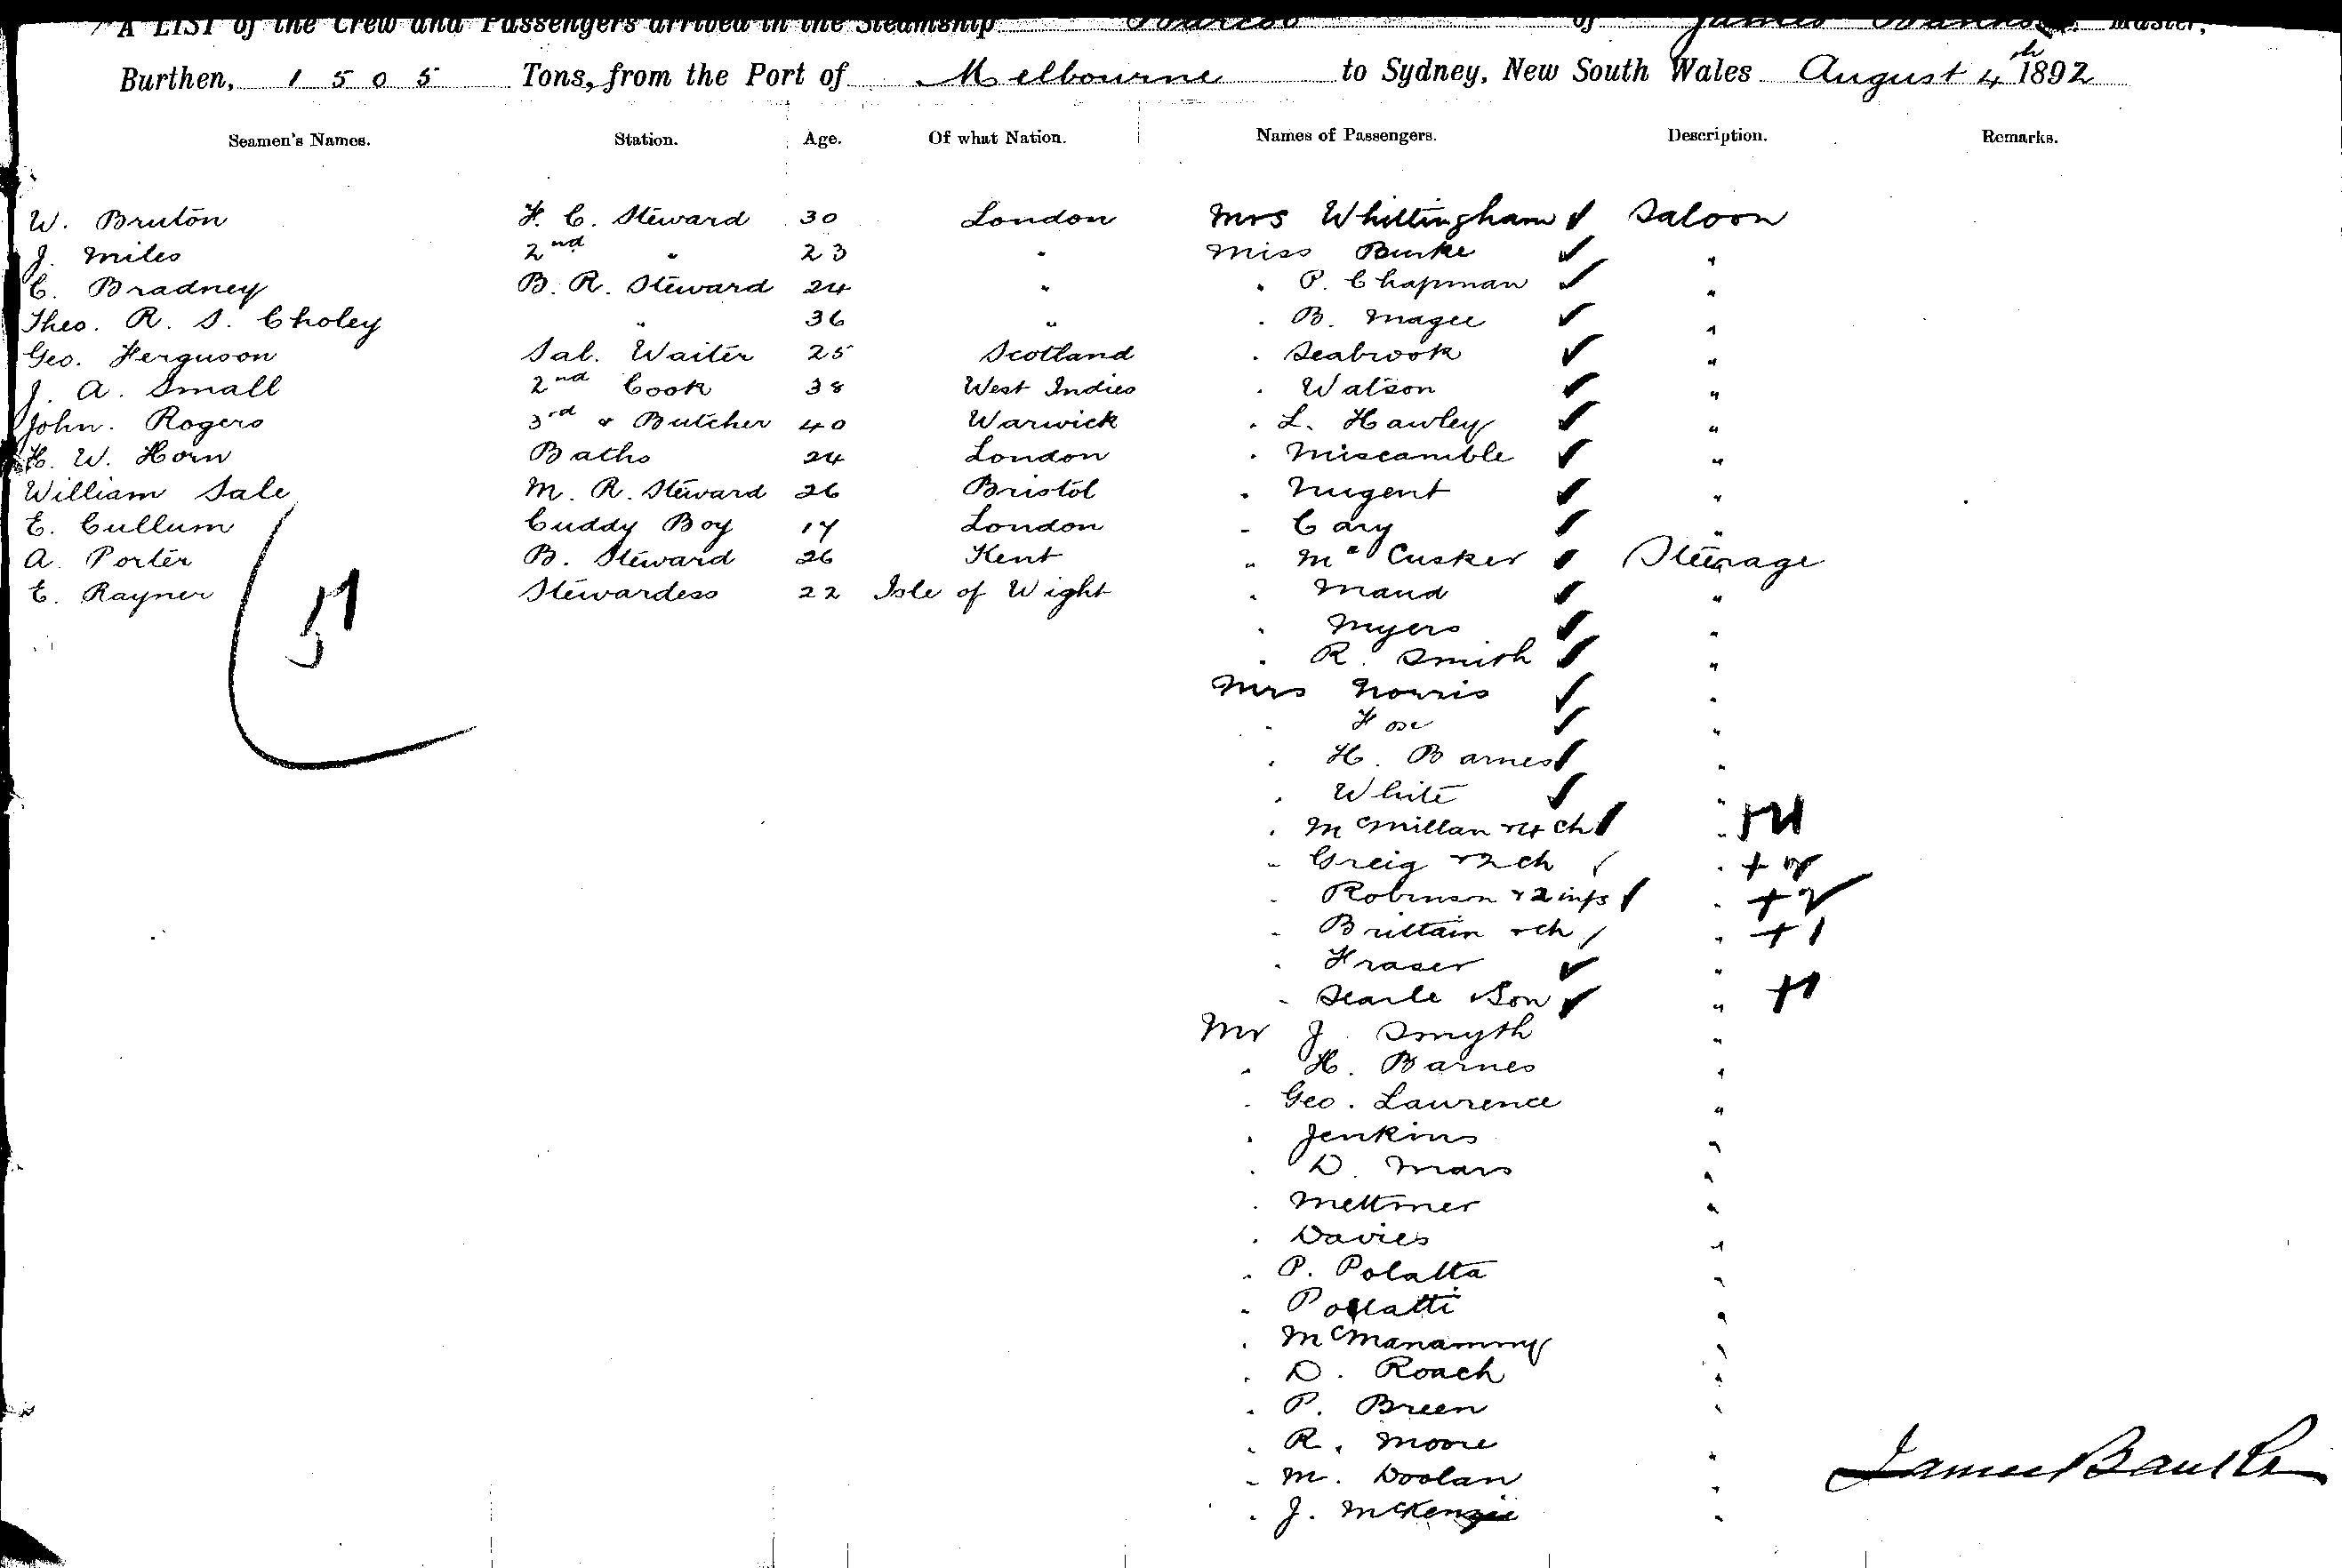 A LIST of the Crew and Passengers arrived in the Steamship of James Master,
Burthen, 1505 Tons, from the Port of Melbourne to Sydney, New South Wales August 4th 1892
Seamen's Names. Station. Age. Of what Nation. Names of Passengers. Description. Remarks.
W. Bruton F. C. Steward 30 London Mrs Whittingham ✓ Saloon
J. Miles 2nd " 23 " Miss Burke ✓ "
C. Bradney B. R. Steward 24 " " P. Chapman ✓ "
Theo. R. S. Choley " 36 " " B. Magee ✓ "
Geo. Ferguson Sal. Waiter 25 Scotland " Seabrook ✓ "
J. A. Small 2nd Cook 38 West Indies " Watson ✓ "
John. Rogers 3rd & Butcher 40 Warwick " L. Hawley ✓ "
H. W. Horn Baths 24 London " Miscamble ✓ "
William Sale M. R. Steward 26 Bristol " Nugent ✓ "
E. Cullum Cuddy Boy 17 London " Cary ✓ "
A. Porter B. Steward 26 Kent " McCusker ✓ Steerage
E. Rayner Stewardess 22 Isle of Wight " Maud ✓ "
51
" Myers ✓ "
" R. Smith ✓ "
Mrs Norris ✓ "
" Fox ✓ "
" H. Barnes ✓ "
" White ✓ "
" McMillan & 4 ch ✓ "
" Greig & 2 ch ✓ " + 2
" Robinson & 2 infs ✓ " + 2
" Brittain & ch ✓ " + 1
" Fraser ✓ "
" Searle & Son ✓ " + 1
Mr J. Smyth "
" H. Barnes "
" Geo. Laurence "
" Jenkins "
" D. Mars "
" Mettmer "
" Davies "
" P. Polatta "
" Pollatti "
" McManammy "
" D. Roach "
" P. Breen "
" R. Moore "
" M. Doolan "
" J. McKenzie "
James